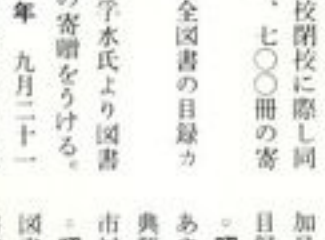 校閉校に際し同
、七〇〇冊の寄
全図書の目録カ
学水氏より図書
の寄贈をうける。
年 九月二十一
加
目
あ
典
市
図